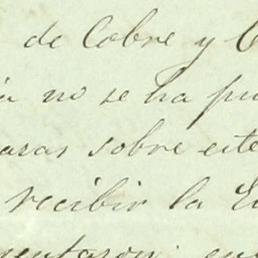 de Cobre y C
no se ha pu
asas sobre este
recibir la E
mentaron en